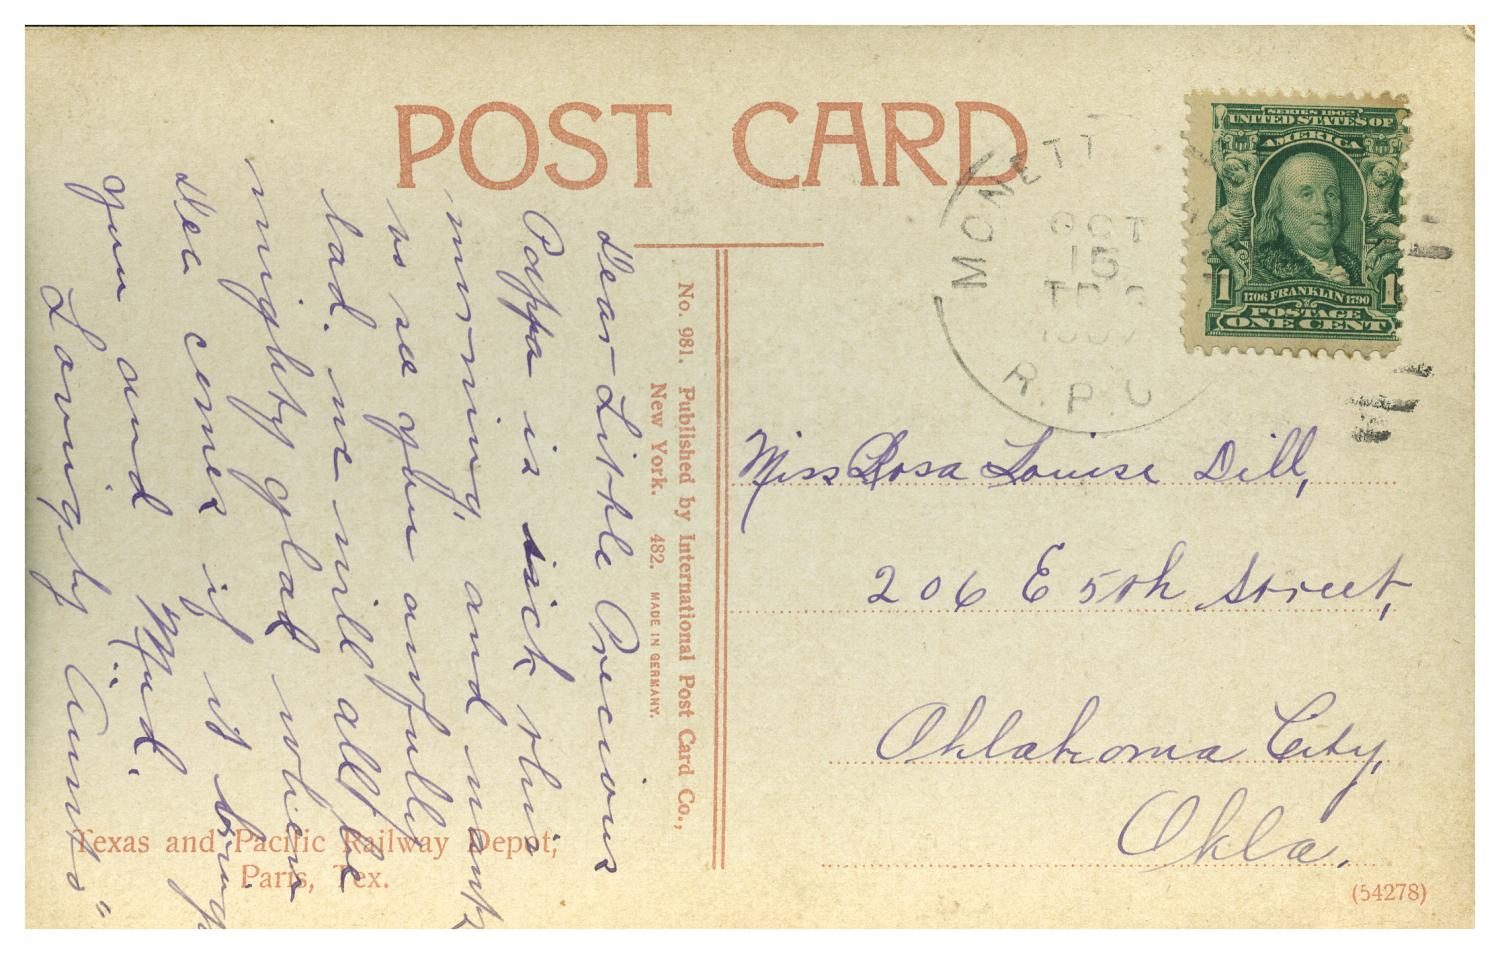 POST CARD
SERIES 1902
UNITED STATES OF
AMERICA
1 1
1706 FRANKLIN 1790
POSTAGE
ONE CENT
MONETT
OCT
15
R.P.O
Dear Little Precious
Pappa is sick this
morning, and wants
to see you awfully
bad. we will all be
mighty glad when
Dec comes if it bring
you and "Mud."
Lovingly "Aunto"
No. 981. Published by International Post Card Co.,
New York. 482. MADE IN GERMANY.
Miss Rosa Louise Dill,
206 E 5th Street,
Oklahoma City,
Okla.
Texas and Pacific Railway Depot,
Paris, Tex.
(54278)